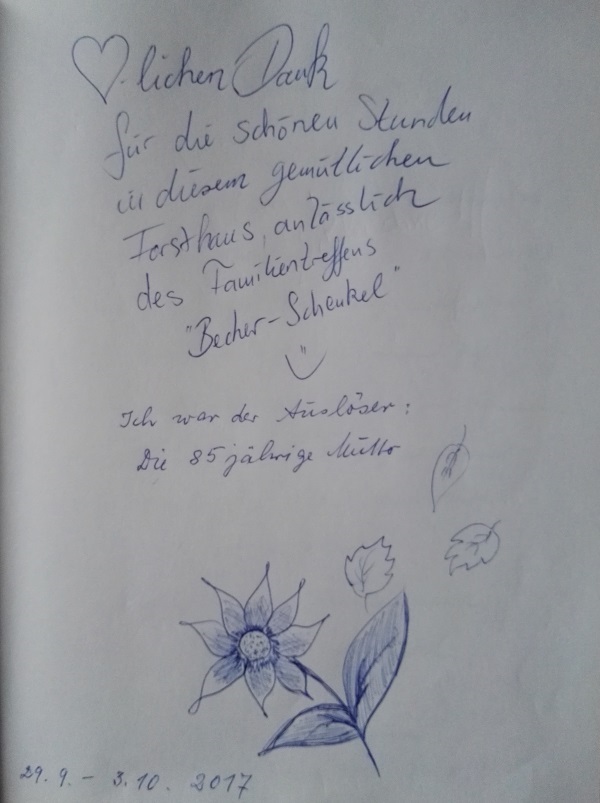 ♡lichen Dank
für die schönen Stunden
in diesem gemütlichen
Forsthaus, anlässlich
des Familientreffens
"Becher-Schenkel"
Ich war der Auslöser:
Die 85 jährige Mutto
29.9. - 3.10. 2017